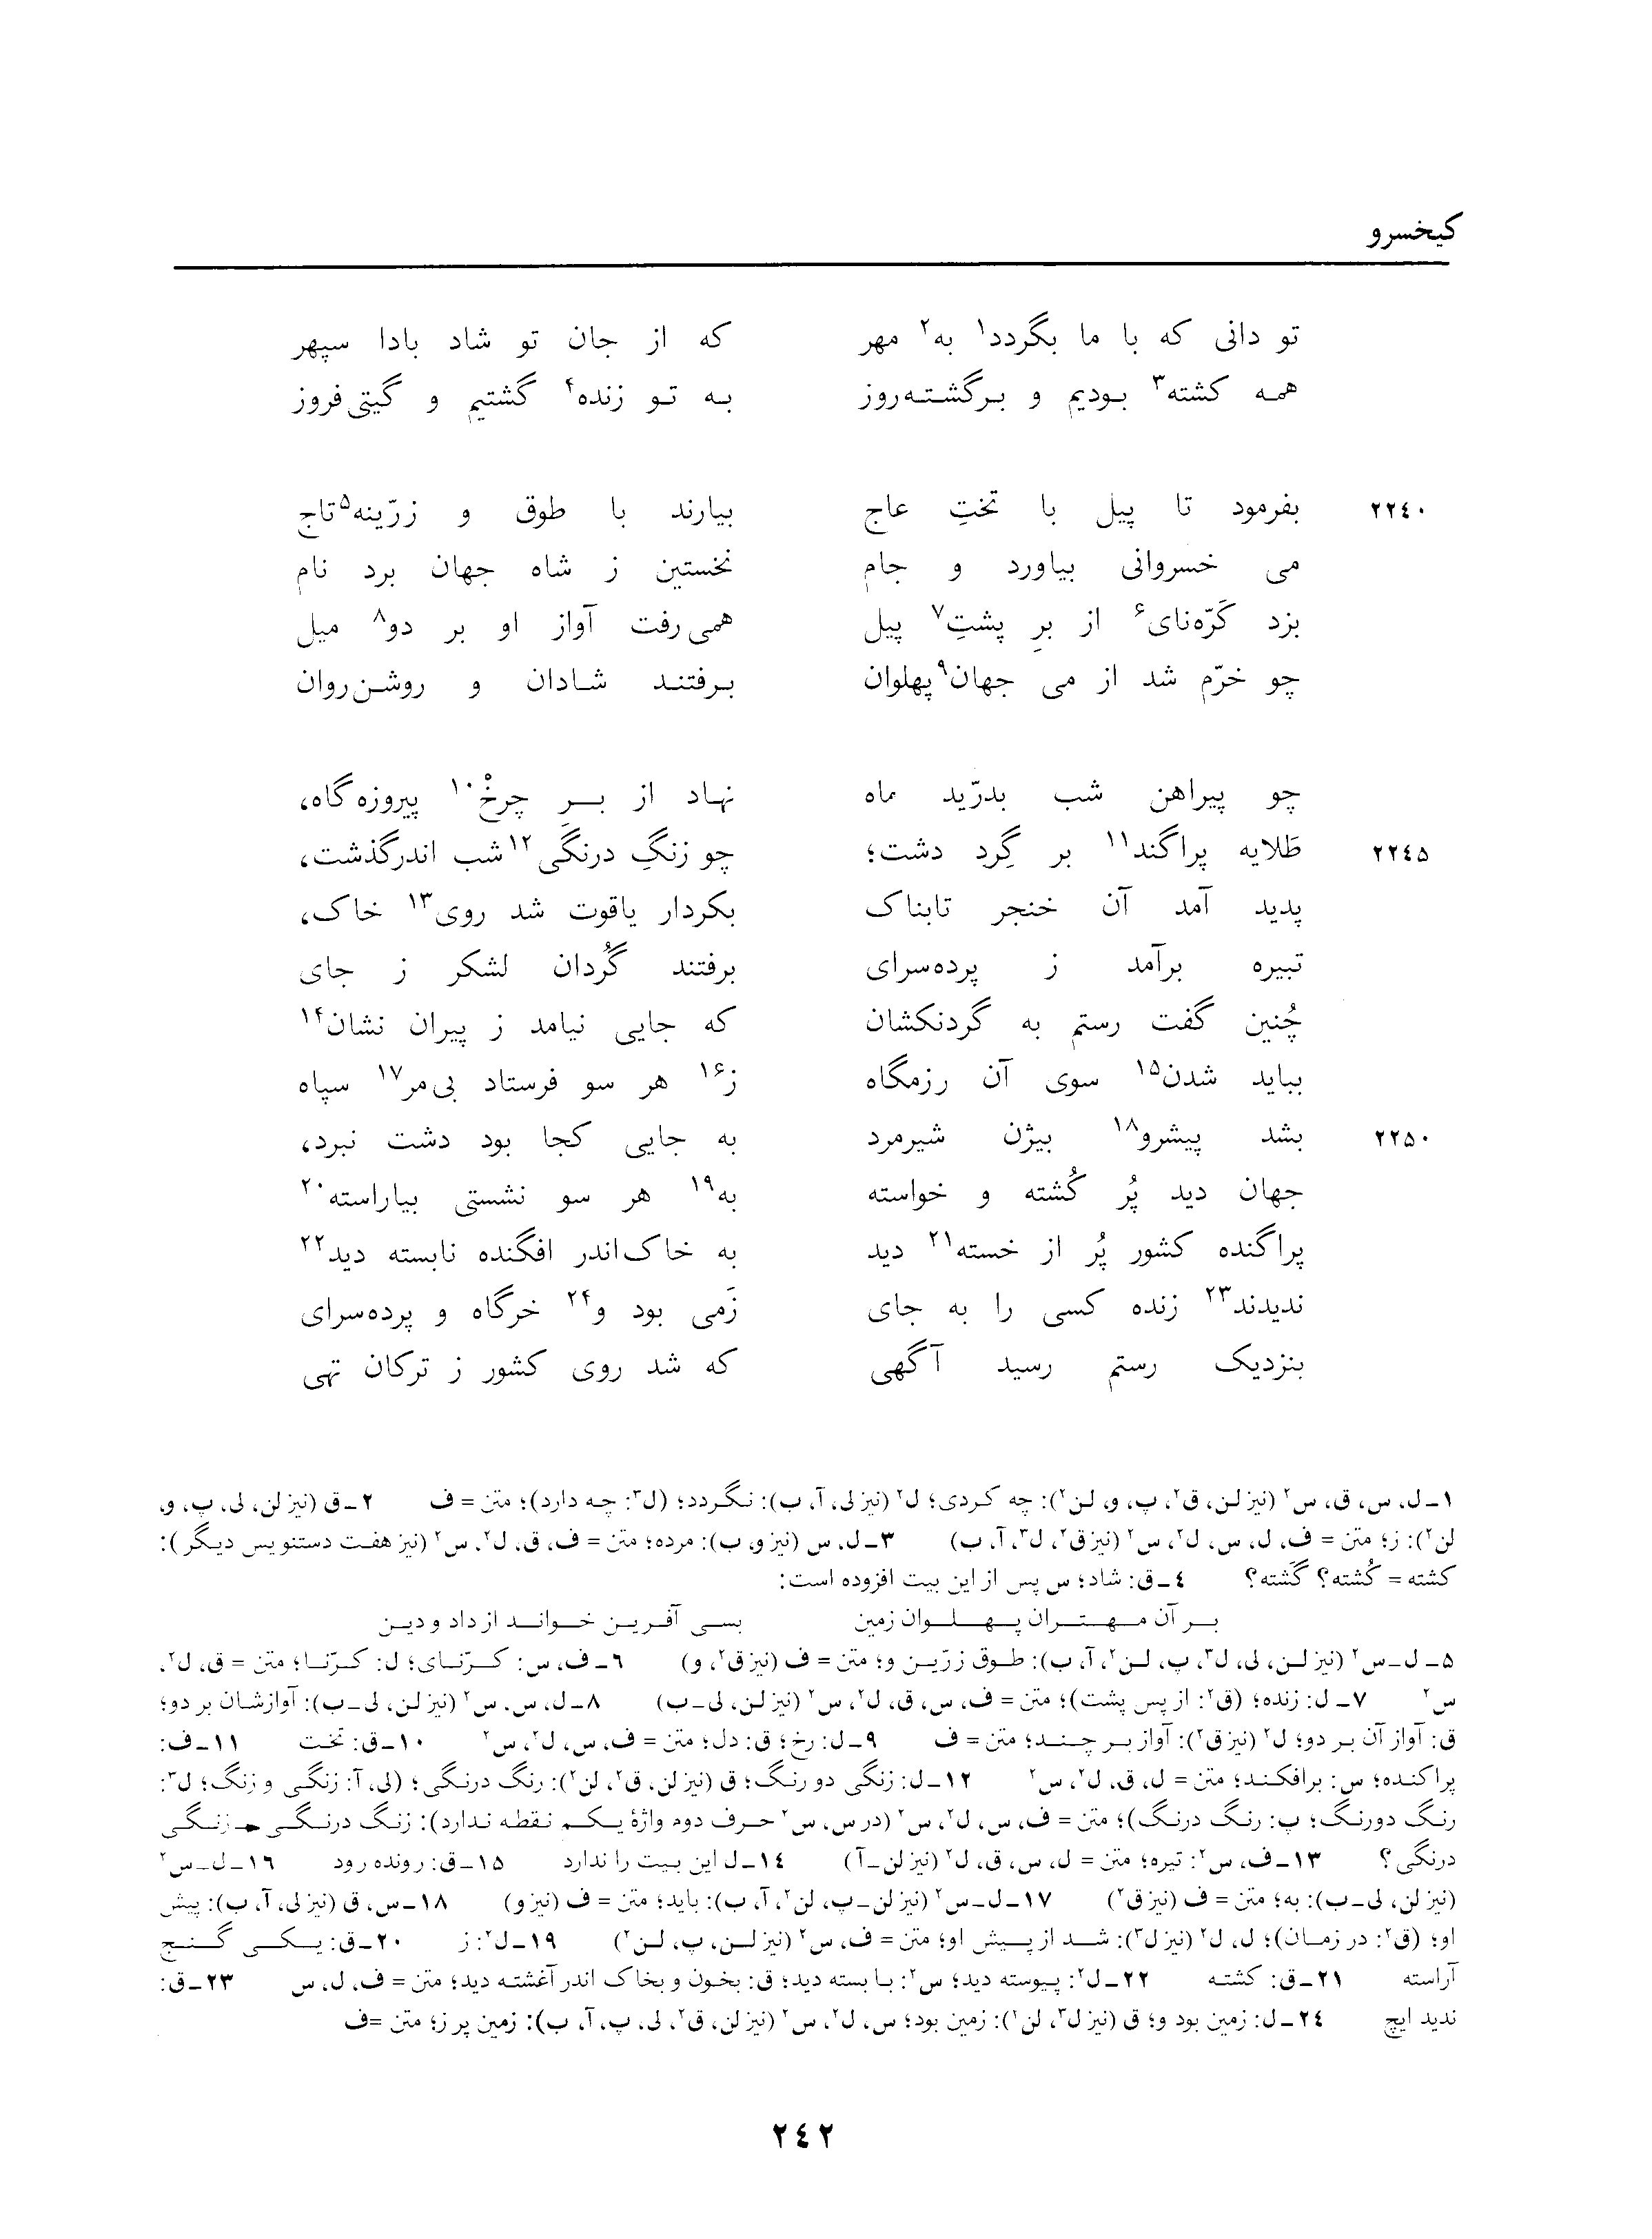 کیخسرو
تو دانی که با ما بگردد۱ به۲ مهر که از جان تو شاد بادا سپهر
همه کشته۳ بودیم و برگشته‌روز به تو زنده۴ گشتیم و گیتی‌فروز
۲۲۴۰ بفرمود تا پیل با تختِ عاج بیارند با طوق و زرّینه۵تاج
می خسروانی بیاورد و جام نخستین ز شاه جهان برد نام
بزد کَرّه‌نای۶ از برِ پشتِ۷ پیل همی‌رفت آواز او بر دو۸ میل
چو خرّم شد از می جهان۹پهلوان برفتند شادان و روشن‌روان
چو پیراهن شب بدرّید ماه نهاد از بـرِ چرخْ۱۰ پیروزه‌گاه،
۲۲۴۵ طَلایه پراگند۱۱ بر گِرد دشت؛ چو زنگِ درنگی۱۲ شب اندرگذشت،
پدید آمد آن خنجر تابناک بکردار یاقوت شد روی۱۳ خاک،
تبیره برآمد ز پرده‌سرای برفتند گُردان لشکر ز جای
چُنین گفت رستم به گردنکشان که جایی نیامد ز پیران نشان۱۴
بباید شدن۱۵ سوی آن رزمگاه ز۱۶ هر سو فرستاد بی‌مر۱۷ سپاه
۲۲۵۰ بشد پیشرو۱۸ بیژن شیرمرد به جایی کجا بود دشت نبرد،
جهان دید پُر کُشته و خواسته به۱۹ هر سو نشستی بیاراسته۲۰
پراگنده کشور پُر از خسته۲۱ دید به خاک‌اندر افگنده نابسته دید۲۲
ندیدند۲۳ زنده کسی را به جای زَمی بود و۲۴ خرگاه و پرده‌سرای
بنزدیک رستم رسید آگهی که شد روی کشور ز ترکان تهی
۱ـ ل، س، ق، س۲ (نیز لن، ق۲، پ، و، لن۲): چه کردی؛ ل۲ (نیز لی، آ، ب): نگردد؛ (ل۳: چه دارد)؛ متن = ف ۲ـ ق (نیز لن، لی، پ، و،
لن۲): ز؛ متن = ف، ل، س، ل۲، س۲ (نیز ق۲، ل۳، آ، ب) ۳ـ ل، س (نیز و، ب): مرده؛ متن = ف، ق، ل۲، س۲ (نیز هفت دستنویس دیگر):
کشته = کُشته؟ گَشته؟ ۴ـ ق: شاد؛ س پس از این بیت افزوده است:
بـر آن مـهـتـران پـهـلـوان زمین بسی آفریـن خـوانـد از داد و دیـن
۵ـ ل ـ س۲ (نیز لن، لی، ل۳، پ، لن۲، آ، ب): طوق زرّین و؛ متن = ف (نیز ق۲، و) ۶ـ ف، س: کـرّنـای؛ ل: کـرّنـا؛ متن = ق، ل۲،
س۲ ۷ـ ل: زنده؛ (ق۲: از پس پشت)؛ متن = ف، س، ق، ل۲، س۲ (نیز لن، لی ـ ب) ۸ـ ل، س، س۲ (نیز لن، لی ـ ب): آوازشان بر دو؛
ق: آواز آن بر دو؛ ل۲ (نیز ق۲): آواز بر چـنـد؛ متن = ف ۹ـ ل: رخ؛ ق: دل؛ متن = ف، س، ل۲، س۲ ۱۰ـ ق: تخت ۱۱ـ ف:
پراکنده؛ س: برافکند؛ متن = ل، ق، ل۲، س۲ ۱۲ـ ل: زنگی دو رنگ؛ ق (نیز لن، ق۲، لن۲): رنگ درنگی؛ (لی، آ: زنگی و زنگ؛ ل۳:
رنگ دورنگ؛ پ: رنگ درنگ)؛ متن = ف، س، ل۲، س۲ (در س، س۲ حرف دوم واژهٔ یکم نقطه ندارد): زنگ درنگی ← زنگی
درنگی؟ ۱۳ـ ف، س۲: تیره؛ متن = ل، س، ق، ل۲ (نیز لن ـ آ) ۱۴ـ ل این بیت را ندارد ۱۵ـ ق: رونده رود ۱۶ـ ل ـ س۲
(نیز لن، لی ـ ب): به؛ متن = ف (نیز ق۲) ۱۷ـ ل ـ س۲ (نیز لن ـ پ، لن۲، آ، ب): باید؛ متن = ف (نیز و) ۱۸ـ س، ق (نیز لی، آ، ب): پیش
او؛ (ق۲: در زمان)؛ ل، ل۲ (نیز ل۳): شـد از پـیـش او؛ متن = ف، س۲ (نیز لن، پ، لن۲) ۱۹ـ ل۲: ز ۲۰ـ ق: یـکـی گـنـج
آراسته ۲۱ـ ق: کشته ۲۲ـ ل۲: پیوسته دید؛ س۲: با بسته دید؛ ق: بخون و بخاک اندر آغشته دید؛ متن = ف، ل، س ۲۳ـ ق:
ندید ایچ ۲۴ـ ل: زمین بود و؛ ق (نیز ل۳، لن۲): زمین بود؛ س، ل۲، س۲ (نیز لن، ق۲، لی، پ، آ، ب): زمین پر ز؛ متن =ف
۲۴۲